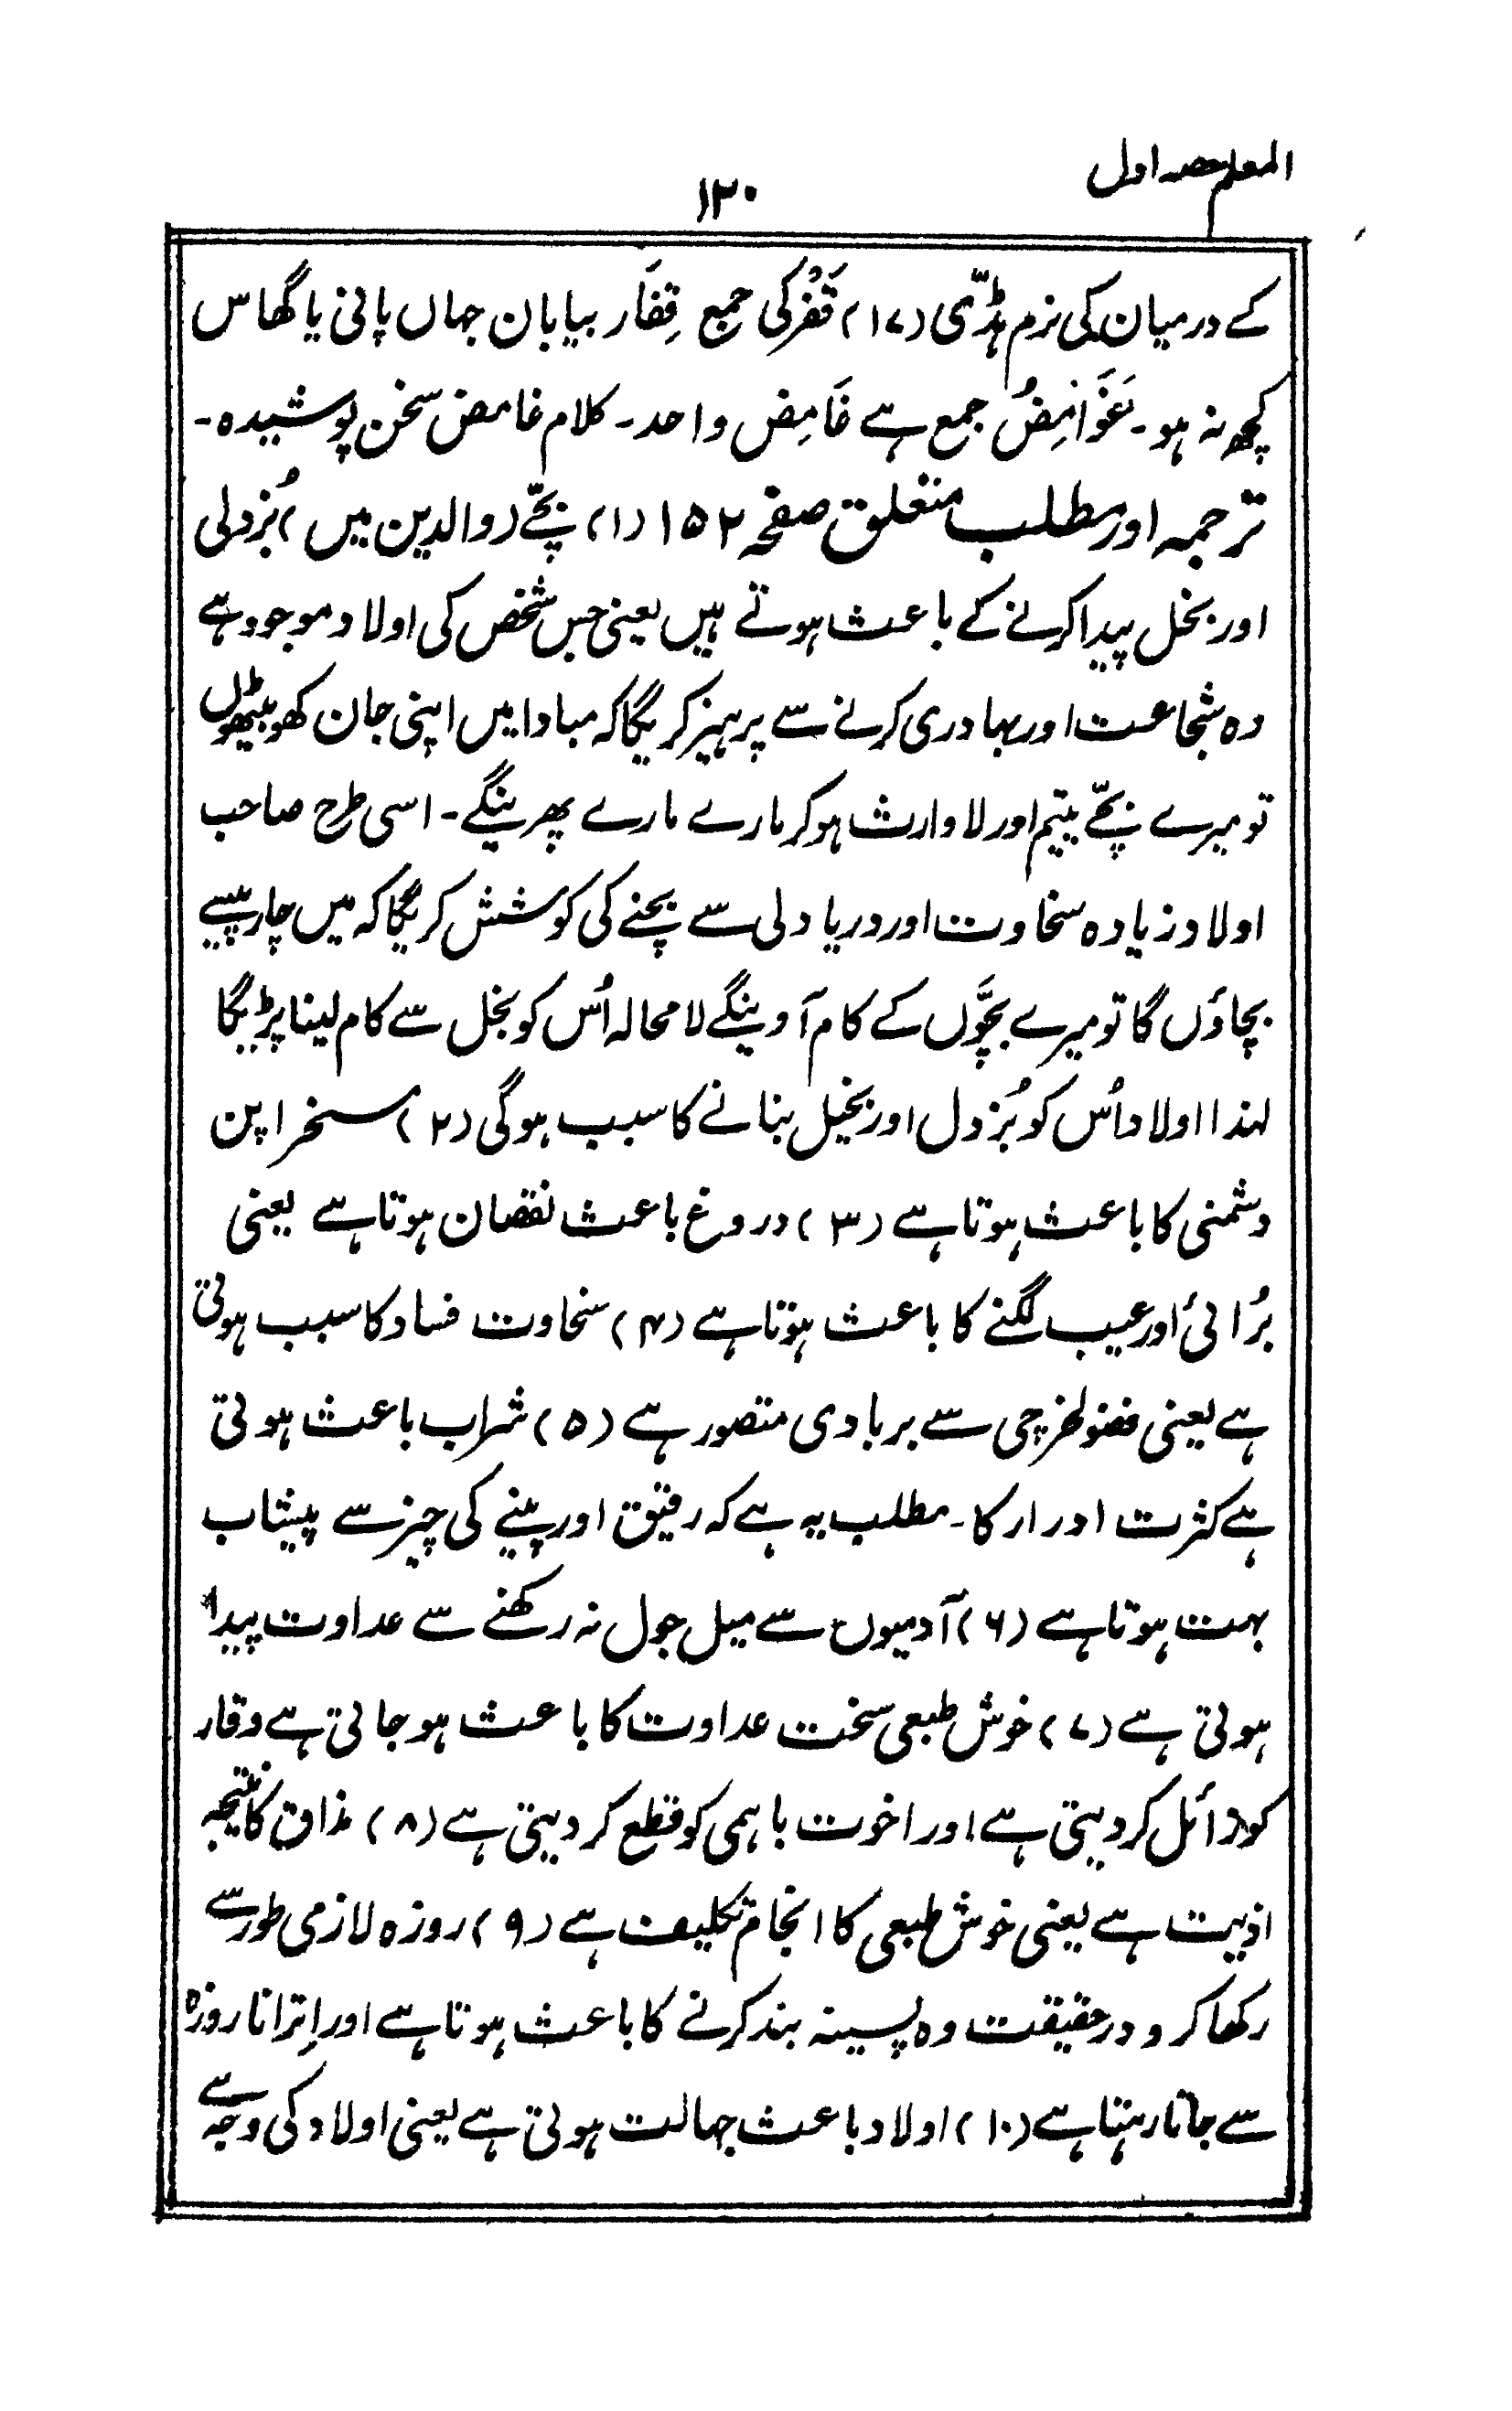 المعلم حصہ اول
۱۲۰
کے درمیان کی نرم ہڈّی (۱۷) قَفْر کی جمع قِفَار بیابان جہاں پانی یا گھاس
کچھ نہ ہو۔ غَوَامِضُ جمع ہے غَامِض واحد۔ کلام غامض سخن پوشیدہ۔
ترجمہ اور مطلب متعلق صفحہ ۱۵۲ (۱) بچّے (والدین میں) بُزدلی
اور بخل پیدا کرنے کے باعث ہوتے ہیں یعنی جس شخص کی اولاد موجود ہے
وہ شجاعت اور بہادری کرنے سے پرہیز کریگا کہ مبادا میں اپنی جان کھو بیٹھوں
تو میرے بچّے یتیم اور لاوارث ہو کر مارے مارے پھرینگے۔ اسی طرح صاحب
اولاد زیادہ سخاوت اور دریا دلی سے بچنے کی کوشش کریگا کہ میں چار پیسے
بچاؤں گا تو میرے بچّوں کے کام آوینگے لا محالہ اُس کو بخل سے کام لینا پڑیگا
لہذا اولاد اُس کو بُزدل اور بخیل بنانے کا سبب ہوگی (۲) مسخراپن
دشمنی کا باعث ہوتا ہے (۳) دروغ باعث نقصان ہوتا ہے یعنی
بُرائی اور عیب لگنے کا باعث ہوتا ہے (۴) سخاوت فساد کا سبب ہوتی
ہے یعنی فضولخرچی سے بربادی متصور ہے (۵) شراب باعث ہوتی
ہے کثرت ادرار کا۔ مطلب یہ ہے کہ رقیق اور پینے کی چیز سے پیشاب
بہت ہوتا ہے (۶) آدمیوں سے میل جول نہ رکھنے سے عداوت پیدا
ہوتی ہے (۷) خوش طبعی سخت عداوت کا باعث ہو جاتی ہے وقار
کو زائل کر دیتی ہے اور اخوت باہمی کو قطع کر دیتی ہے (۸) مذاق کا نتیجہ
اذیت ہے یعنی خوش طبعی کا انجام تکلیف ہے (۹) روزہ لازمی طور سے
رکھا کرو درحقیقت وہ پسینہ بند کرنے کا باعث ہوتا ہے اور اِترانا روزہ
سے جاتا رہتا ہے (۱۰) اولاد باعث جہالت ہوتی ہے یعنی اولاد کی وجہ سے